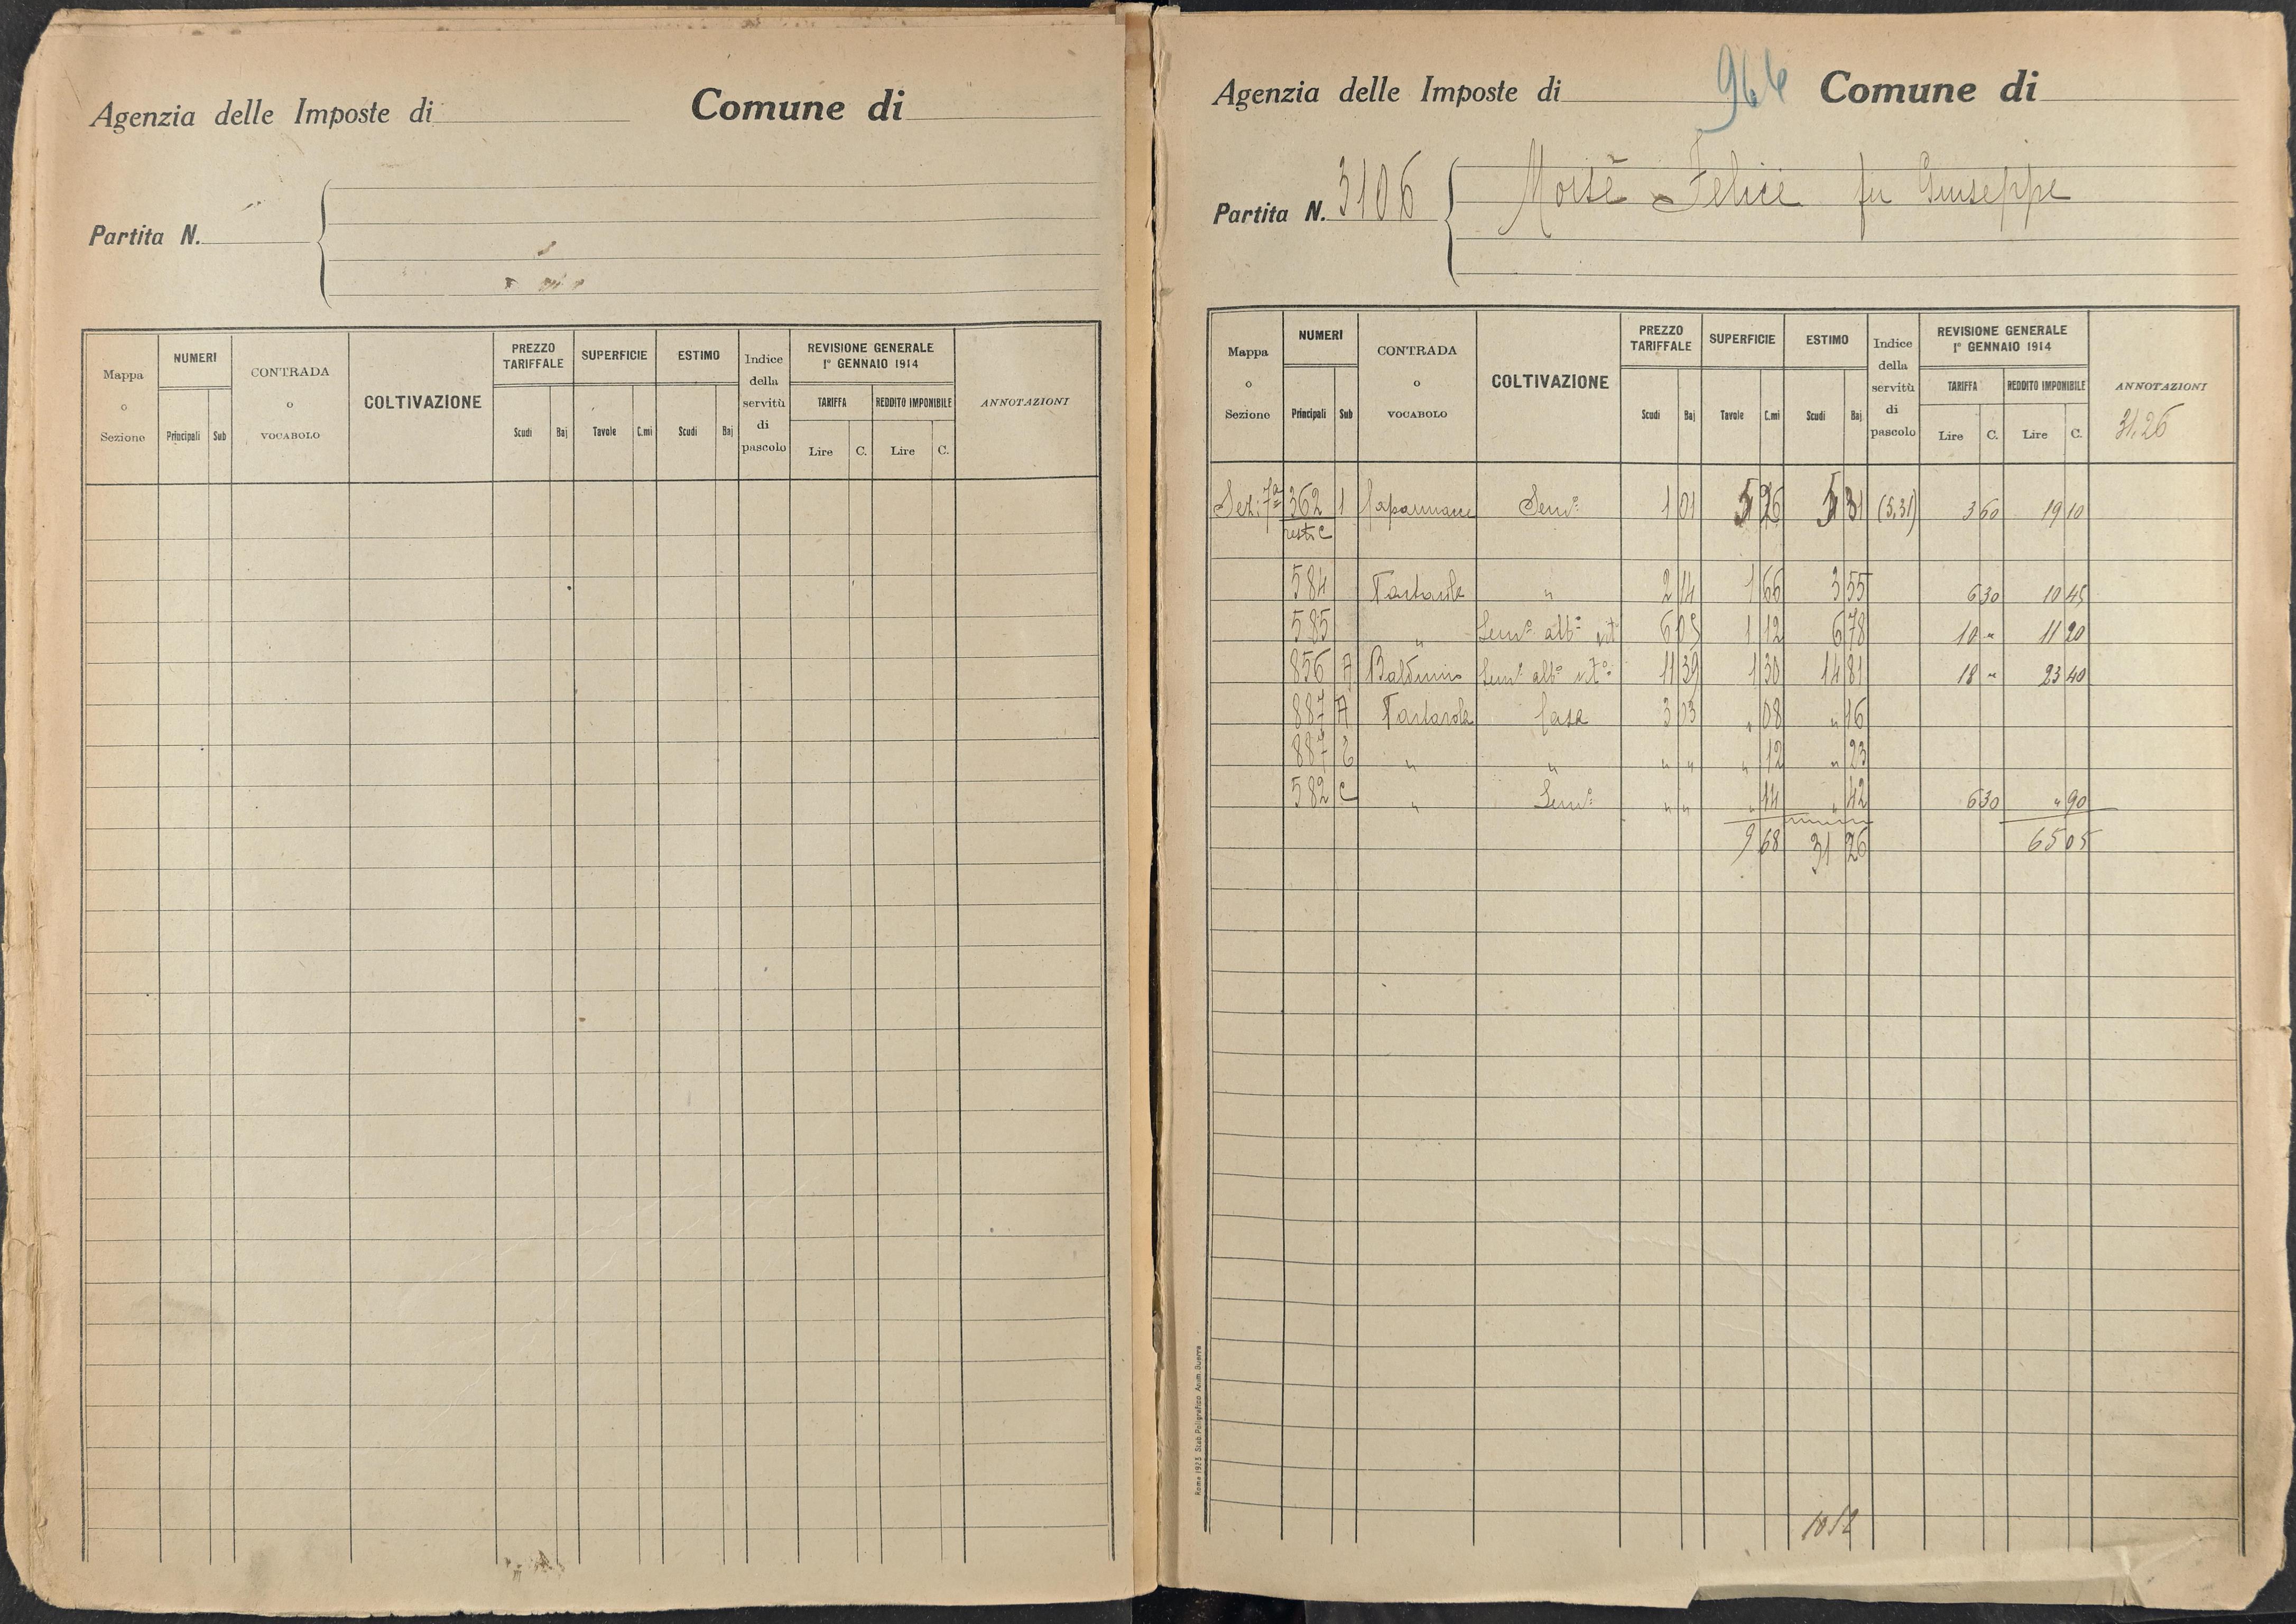 Agenzia delle Imposte di Comune di
Partita N.
Mappa o Sezione NUMERI Principali Sub CONTRADA o VOCABOLO COLTIVAZIONE PREZZO TARIFFALE Scudi Baj SUPERFICIE Tavole C.mi ESTIMO Scudi Baj Indice della servitù di pascolo REVISIONE GENERALE 1° GENNAIO 1914 TARIFFA Lire C. REDDITO IMPONIBILE Lire C. ANNOTAZIONI
964
Agenzia delle Imposte di Comune di
Partita N. 3106 Moisè Felice fu Giuseppe
Mappa o Sezione NUMERI Principali Sub CONTRADA o VOCABOLO COLTIVAZIONE PREZZO TARIFFALE Scudi Baj SUPERFICIE Tavole C.mi ESTIMO Scudi Baj Indice della servitù di pascolo REVISIONE GENERALE 1° GENNAIO 1914 TARIFFA Lire C. REDDITO IMPONIBILE Lire C. ANNOTAZIONI
31,26
Sez: 7ª 362 1 Sem° 1 01 5 26 5 31 (5,31) 3 60 19 10
rest: C
584 " 2 14 1 66 3 55 6 30 10 45
585 " Sem° alb° vit° 6 05 1 12 6 78 10 " 11 20
856 A Sem° alb° vit° 11 39 1 30 14 81 18 " 23 40
887 A Casa 3 03 " 08 " 16
887 " " " " " 12 " 23
582 C " Sem° " " " 14 " 42 6 30 " 90
9 68 31 26 65 05
Roma 1923 Stab. Poligrafico Amm. Guerra